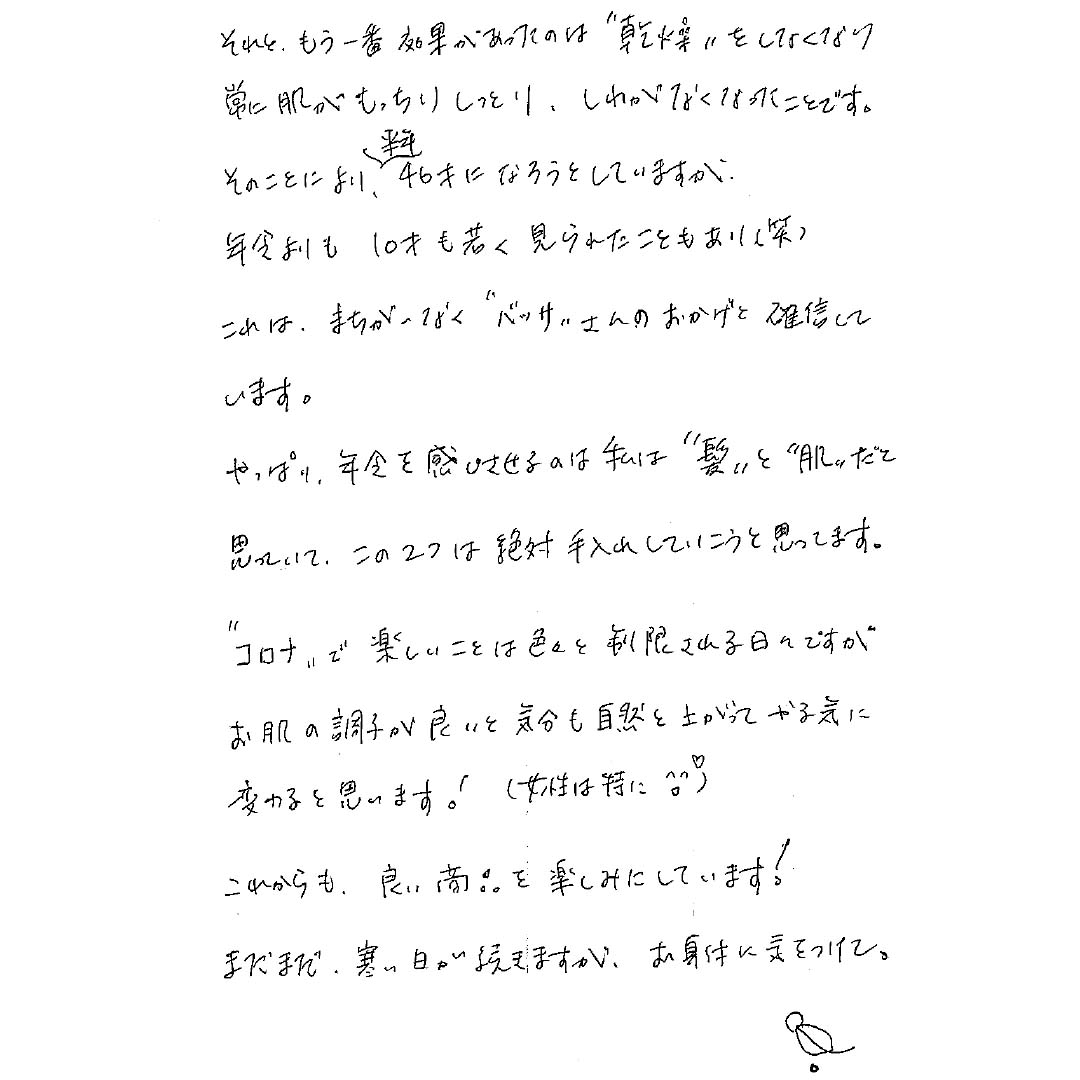 それと、もう一番効果があったのは〝乾燥〟をしなくなり
常に肌がもっちりしっとり、しわがなくなったことです。
半年
そのことにより、46才になろうとしていますが、
年令よりも10才も若く見られたこともあり(笑)
これは、まちがいなく〝バッサ〟さんのおかげと確信して
います。
やっぱり、年令を感じさせるのは私は〝髪〟と〝肌〟だと
思っていて、この2つは絶対手入れしていこうと思ってます。
〝コロナ〟で楽しいことは色々と制限される日々ですが
お肌の調子が良いと気分も自然と上がってやる気に
変わると思います!(女性は特に^^♡)
これからも、良い商品を楽しみにしています!
まだまだ、寒い日が続きますが、お身体に気をつけて。